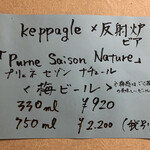 keppagle × 反射炉ビア
「Purne Saison Nature」
プリュネ セゾン ナチュール
<梅ビール>
330ml ¥920
750ml ¥2,200 (税別)